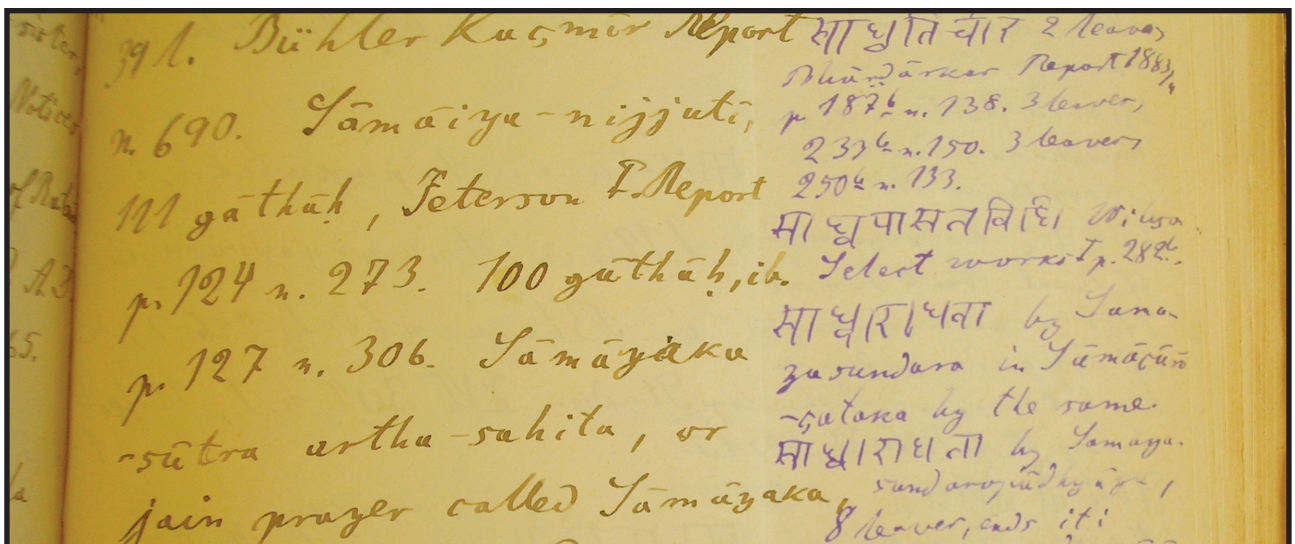 391. Bühler Kaçmīr Report
n. 690. Sāmāiya-nijjuti,
111 gāthāḥ, Peterson I. Report
p. 124 n. 273. 100 gāthāḥ, ib.
p. 127 n. 306. Sāmāyaka
-sūtra artha-sahita, or
jain prayer called Sāmāyaka,
साधुतिचार 2 leaves
Bhāṇḍārkar Report 1883/4
p. 187b n. 138. 3 leaves,
233b n. 150. 3 leaves
250b n. 133.
साधूपासनविधि Wilson
Select works I p. 282.
साध्वाराधना by Sama-
yasundara in Sāmācārī
-çataka by the same.
साधाराधना by Samaya-
sundaropādhyāya,
8 leaves, ends iti
Notices
65.